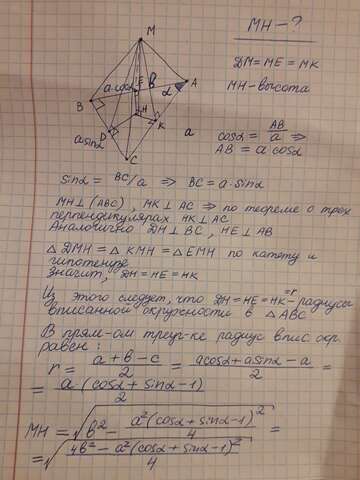 MH - ?
M
DM = ME = MK
MH - высота
a·cosα
E
b
α
A
B
H
K
D
a sinα
C
a
cosα = AB/a ⇒
AB = a cosα
sinα = BC/a ⇒ BC = a·sinα
MH ⊥ (ABC), MK ⊥ AC ⇒ по теореме о трех
перпендикулярах HK ⊥ AC
Аналогично DH ⊥ BC, HE ⊥ AB
△DMH = △KMH = △EMH по катету и
гипотенузе
значит, DH = HE = HK
Из этого следует, что DH = HE = HK = r - радиусы
вписанной окружности в △ABC
В прям-ом треуг-ке радиус впис окр.
равен:
r = (a + b - c)/2 = (a cosα + a sinα - a)/2 =
= a (cosα + sinα - 1)/2
MH = √(b² - a²(cosα + sinα - 1)²/4) =
= √((4b² - a²(cosα + sinα - 1)²)/4)